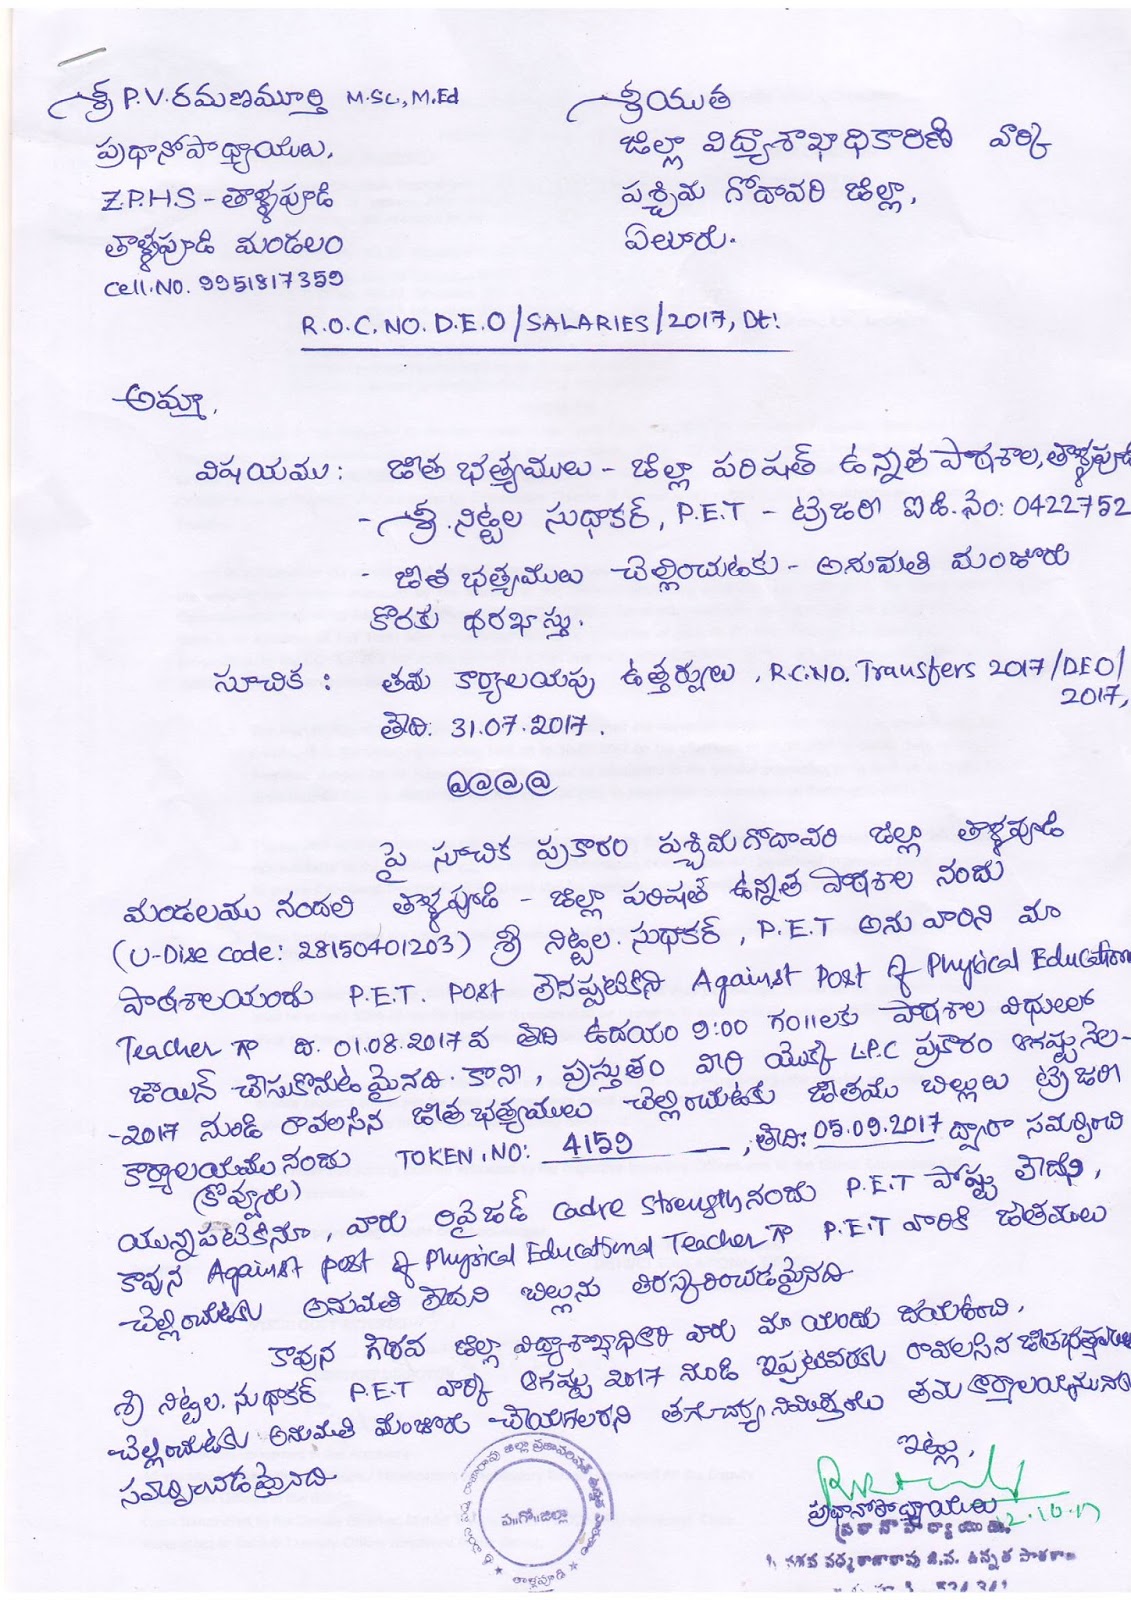 శ్రీ P.V.రమణమూర్తి M.Sc., M.Ed
ప్రధానోపాధ్యాయులు,
Z.P.H.S - తాళ్ళపూడి
తాళ్ళపూడి మండలం
Cell.No. 9951817359
శ్రీయుత
జిల్లా విద్యాశాఖాధికారిణి వార్కి
పశ్చిమ గోదావరి జిల్లా,
ఏలూరు.
R.O.C.NO.D.E.O/SALARIES/2017, Dt:
అమ్మా,
విషయము: జీత భత్యములు - జిల్లా పరిషత్ ఉన్నత పాఠశాల, తాళ్ళపూడి
- శ్రీ.నిట్టల సుధాకర్, P.E.T - ట్రెజరీ ఐ.డి.నెం: 0422752
- జీత భత్యములు చెల్లించుటకు - అనుమతి మంజూరు
కొరకు ధరఖాస్తు.
సూచిక: తమ కార్యాలయపు ఉత్తర్వులు, R.C.NO. Transfers 2017/DEO/
2017,
తేది: 31.07.2017.
@@@@
పై సూచిక ప్రకారం పశ్చిమగోదావరి జిల్లా తాళ్ళపూడి
మండలము నందలి తాళ్ళపూడి - జిల్లా పరిషత్ ఉన్నత పాఠశాల నందు
(U-Dise code: 28150401203) శ్రీ నిట్టల.సుధాకర్, P.E.T అను వారిని మా
పాఠశాలయందు P.E.T. Post లేనప్పటికిని Against Post of Physical Education
Teacher గా ది. 01.08.2017 వ తేది ఉదయం 9:00 గం॥లకు పాఠశాల విధులలో
జాయిన్ చేసుకొనుటమైనది. కానీ, ప్రస్తుతం వారి యొక్క L.P.C ప్రకారం ఆగష్టు నెల-
-2017 నుండి రావలసిన జీతభత్యములు చెల్లించుటకు జీతము బిల్లులు ట్రెజరీ
కార్యాలయము నందు TOKEN.NO: 4159, తేది: 05.09.2017 ద్వారా సమర్పించి
(కొవ్వూరు)
యున్నపటికినూ, వారు రివైజడ్ Cadre Strength నందు P.E.T పోస్టు లేదని,
కావున Against post of Physical Educational Teacher గా P.E.T వారికి జీతములు
చెల్లించుటకు అనుమతి లేదని బిల్లును తిరస్కరించడమైనది
కావున గౌరవ జిల్లా విద్యాశాఖాధికారి వారు మా యందు దయఉంచి,
శ్రీ నిట్టల.సుధాకర్ P.E.T వార్కి ఆగష్టు 2017 నుండి ఇప్పటివరకు రావలసిన జీతభత్యములు
చెల్లించుటకు అనుమతి మంజూరు చేయగలరని తగుచర్య నిమిత్తము తమ కార్యాలయమునకు
సమర్పించడమైనది
ఇట్లు,
ప్రధానోపాధ్యాయులు
12.10.17
ప॥గో॥జిల్లా
తాళ్ళపూడి
ప్రధానోపాధ్యాయుడు
ఉన్నత పాఠశాల
534 341